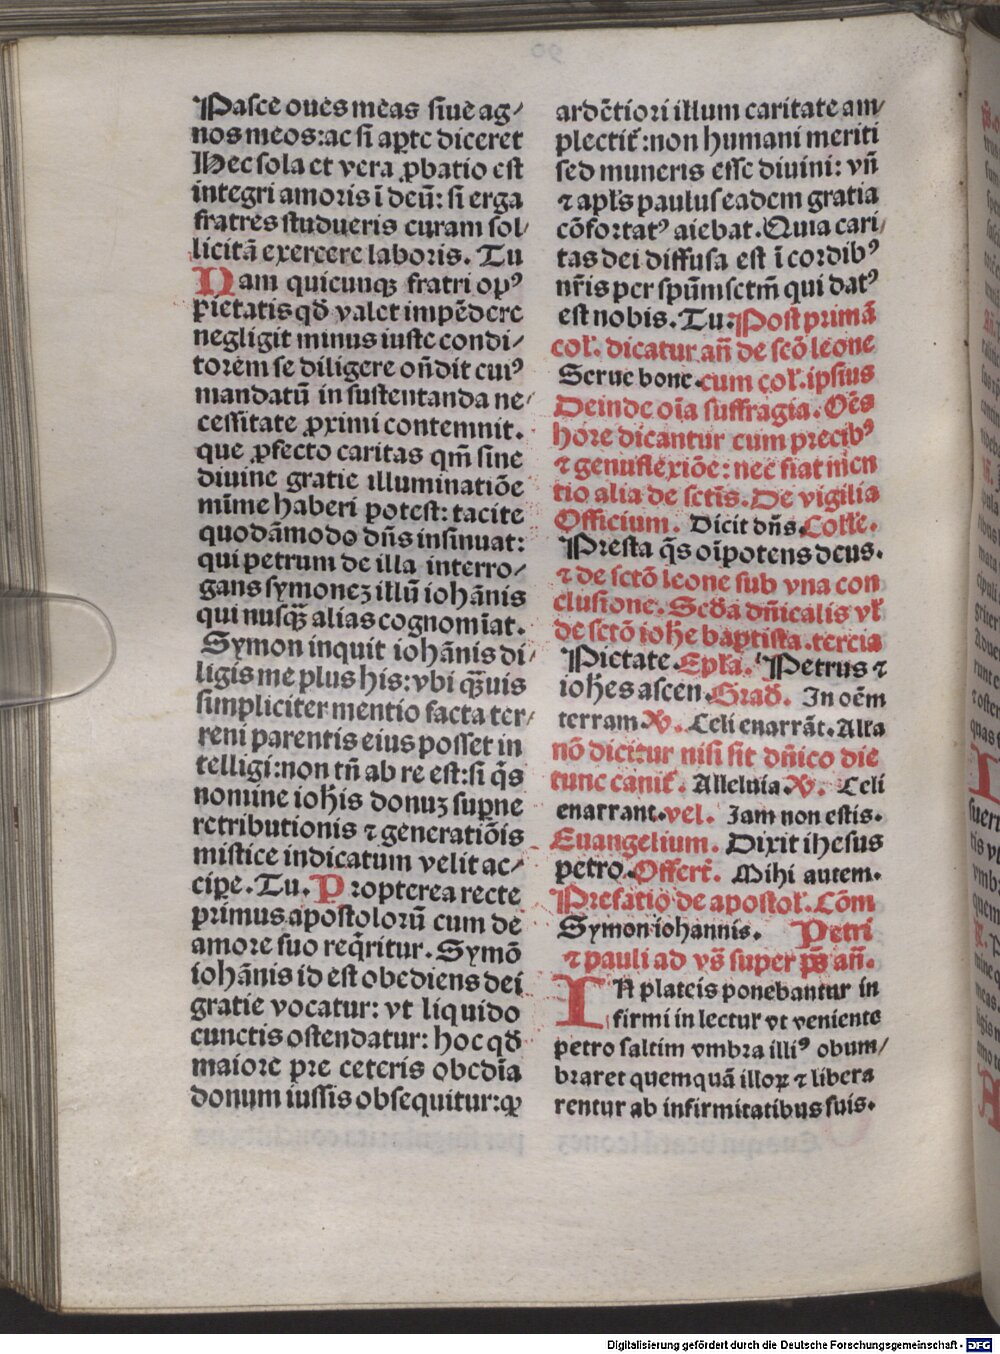 Paſce oues meas ſiue ag⸗
nos meos:ac ſi aꝑte diceret
Hec ſola et vera ꝓbatio eſt
integri amoris ī deū: ſi erga
fratres ſtudueris curam ſol⸗
licitā exercere laboris. Tu
Nam quicunqꝫ fratri opꝰ
pietatis qd̄ valet impēdere
negligit minus iuſte condi⸗
torem ſe diligere on̄dit cuiꝰ
mandatū in ſuſtentanda ne⸗
ceſſitate ꝓximi contemnit.
que ꝓfecto caritas qm̄ ſine
diuine gratie illuminatiōe
mīme haberi poteſt: tacite
quodāmodo dn̄s inſinuat:
qui petrum de illa interro⸗
gans ſymoneꝫ illū iohānis
qui nuſqꝫ̄ alias cognomīat.
Symon inquit iohānis di⸗
ligis me plus his: vbi qꝫ̄uis
ſimpliciter mentio facta ter⸗
reni parentis eius poſſet in
telligi: non tn̄ ab re eſt: ſi q̄s
nomine iohīs donuꝫ ſuꝑne
retributionis ⁊ generatiōis
miſtice indicatum velit ac⸗
cipe. Tu. Propterea recte
primus apoſtolorū cum de
amore ſuo reqͥritur. Symō
iohānis id eſt obediens dei
gratie vocatur: vt liquido
cunctis oſtendatur: hoc qd̄
maiore pre ceteris obedīa
donum iuſſis obſequitur: ꝙ
ardētiori illum caritate am⸗
plectit᷑: non humani meriti
ſed muneris eſſe diuini: vn̄
⁊ apl̓s paulus eadem gratia
cōfortatꝰ aiebat. Quia cari⸗
tas dei diffuſa eſt ī cordibꝰ
nr̄is per ſpūm ſctm̄ qui datꝰ
eſt nobis. Tu. Poſt primā
col̓. dicatur an̄ de ſcō leone
Serue bone. cum col̓. ipſius
Deinde oīa ſuffragia. Oēs
hore dicantur cum precibꝰ
⁊ genuflexiōe: nec fiat men
tio alia de ſctīs. De vigilia
Officium. Dicit dn̄s. Colle.
Preſta q̄s oīpotens deus.
⁊ de ſctō leone ſub vna con
cluſione. Scd̄a dn̄icalis vl̓
de ſctō iohe baptiſta. tercia
Pietate. Epl̓a. Petrus ⁊
iohes aſcen. Grad̓. In oēm
terram ℣. Celi enarrāt. All̓a
nō dicitur niſi ſit dn̄ico die
tunc canit᷑. Alleluia. ℣. Celi
enarrant. vel. Iam non eſtis.
Euangelium. Dixit iheſus
petro. Offert̓. Mihi autem.
Prefatio de apoſtol̓. Cōm
Symon iohannis. Petri
⁊ pauli ad vs̄ ſuper ps̄ an̄.
IN plateis ponebantur in
firmi in lectur vt veniente
petro ſaltim vmbra illiꝰ obum⸗
braret quemquā illoꝝ ⁊ libera
rentur ab infirmitatibus ſuis.
Digitalisierung gefördert durch die Deutsche Forschungsgemeinschaft - DFG